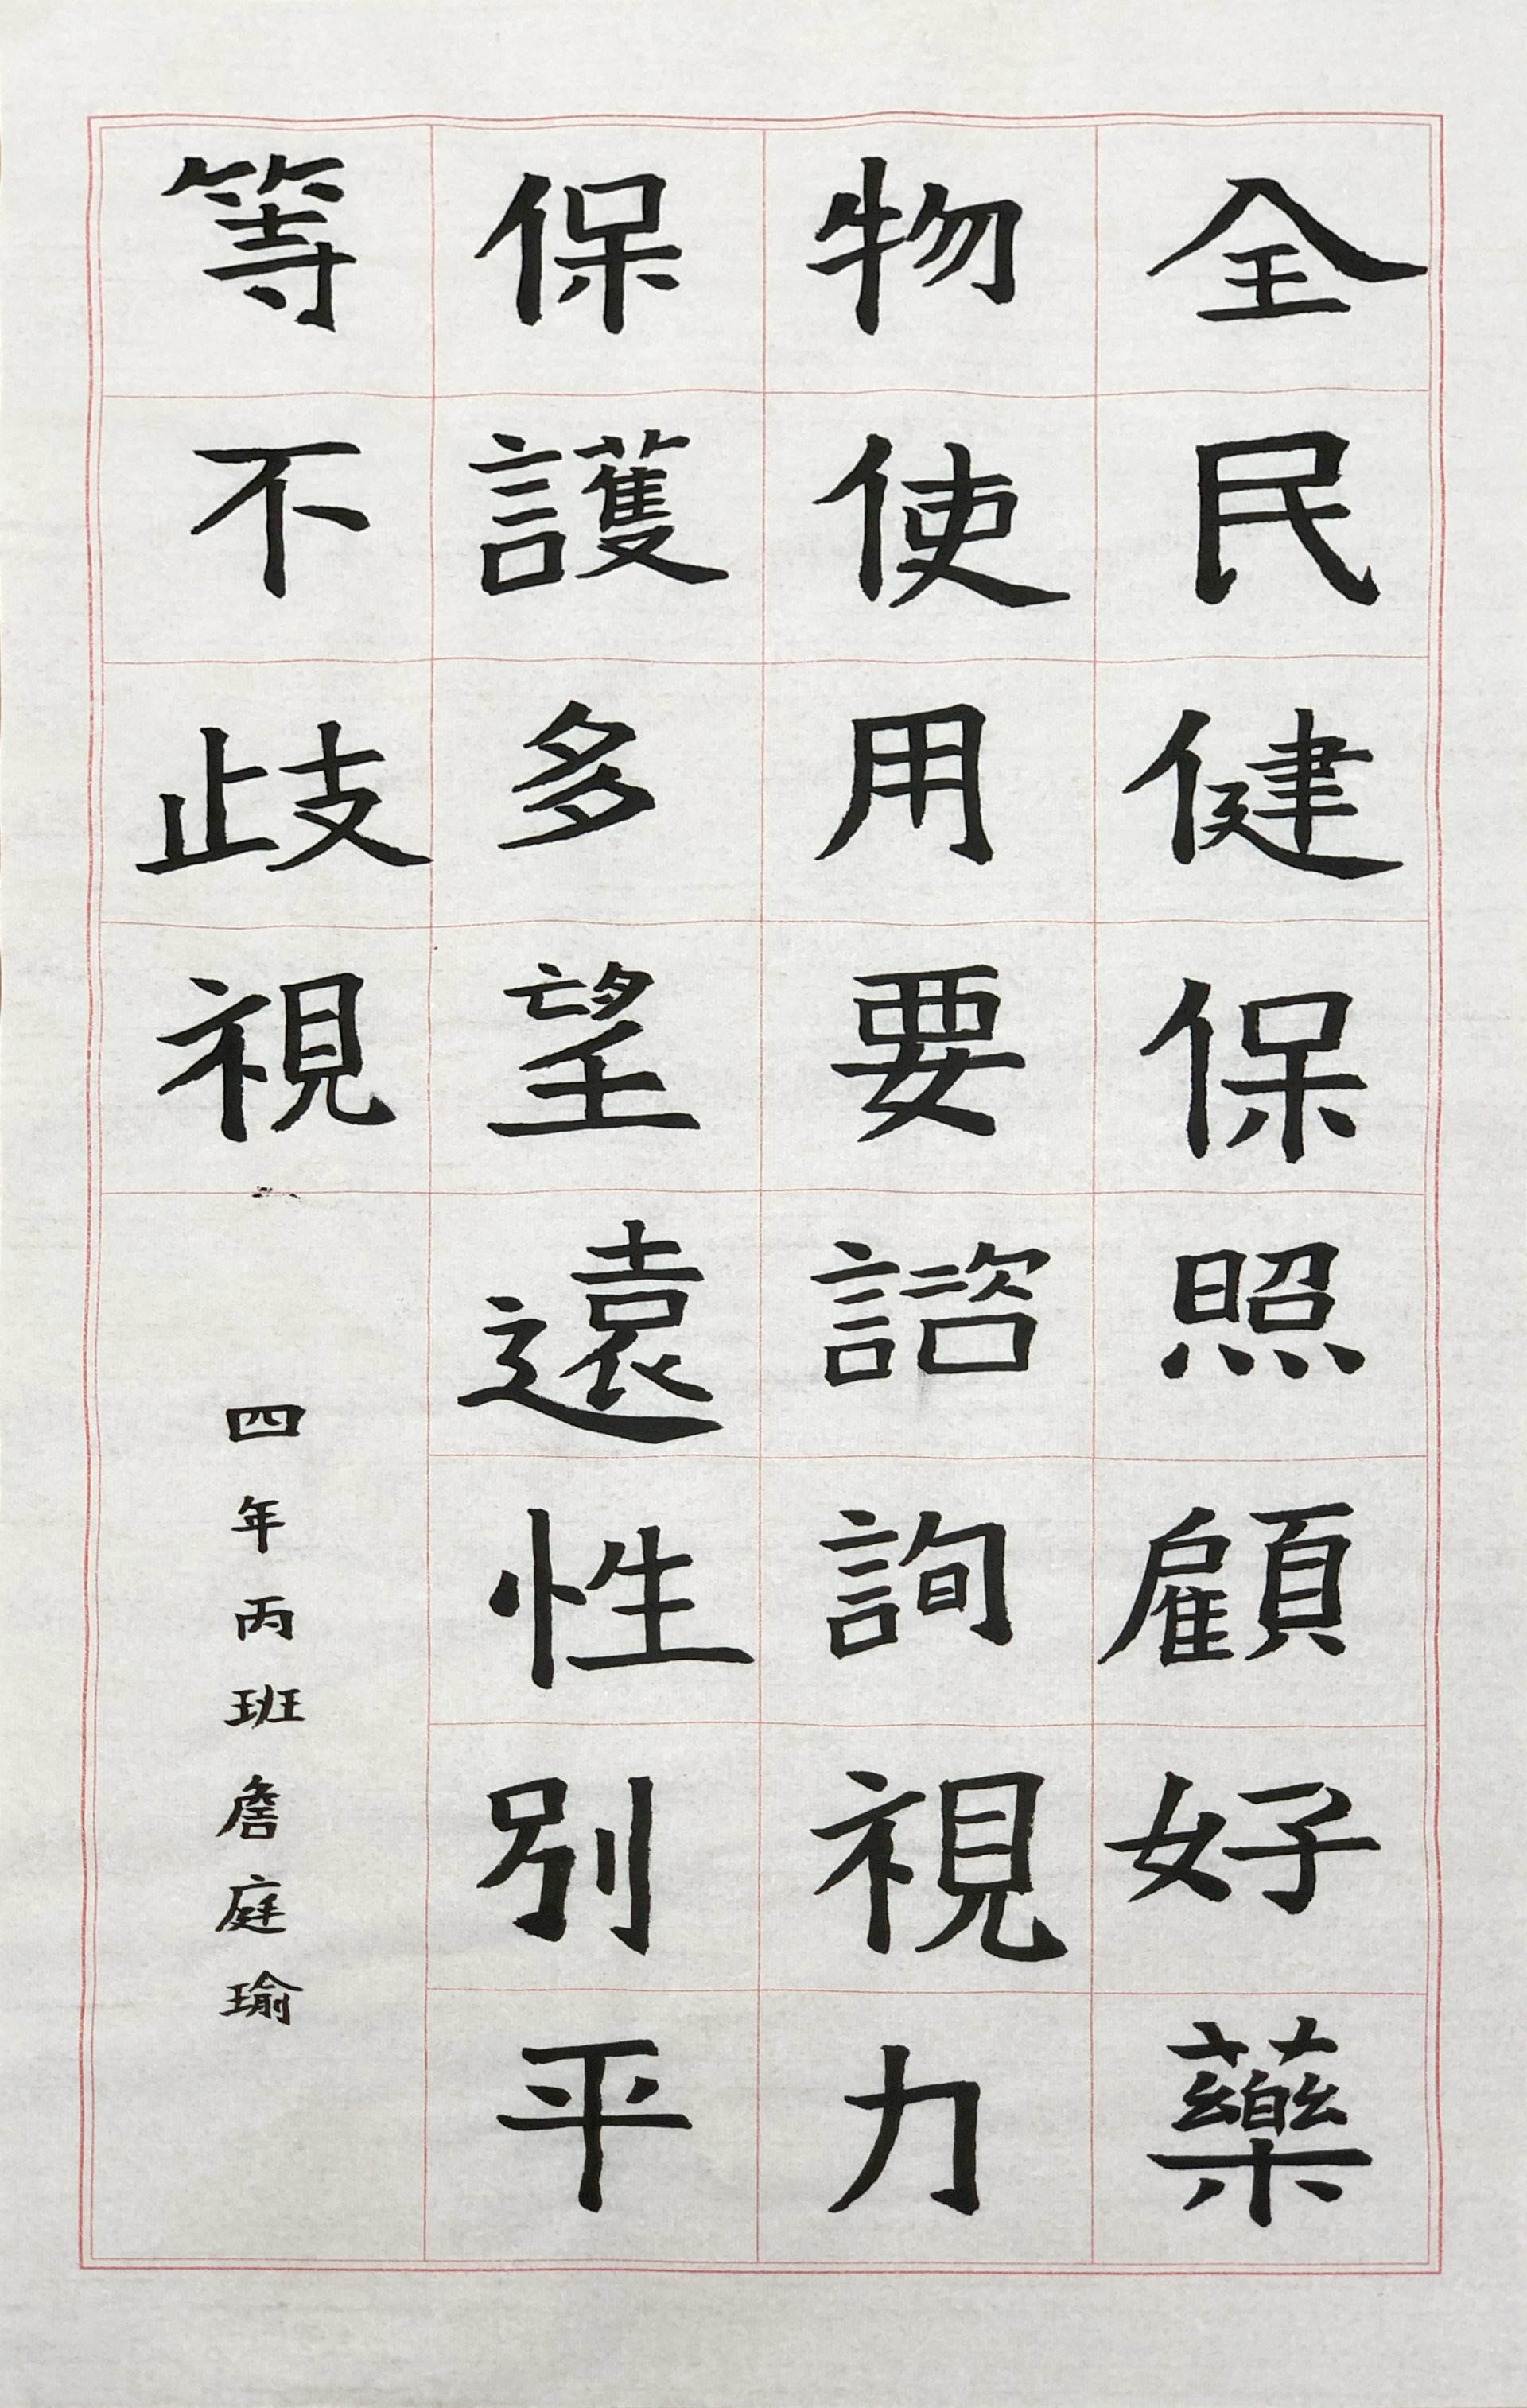 全民健保照顧好藥
物使用要諮詢視力
保護多望遠性別平
等不歧視
四年丙班詹庭瑜